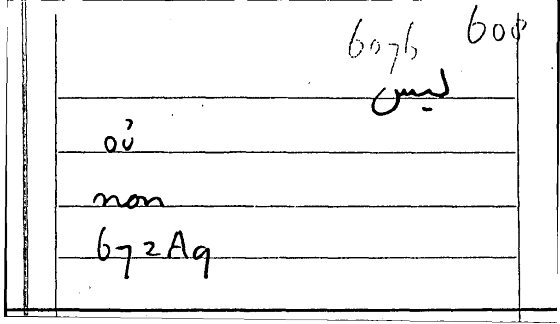 607b 608
ليس
οὐ
non
672A9